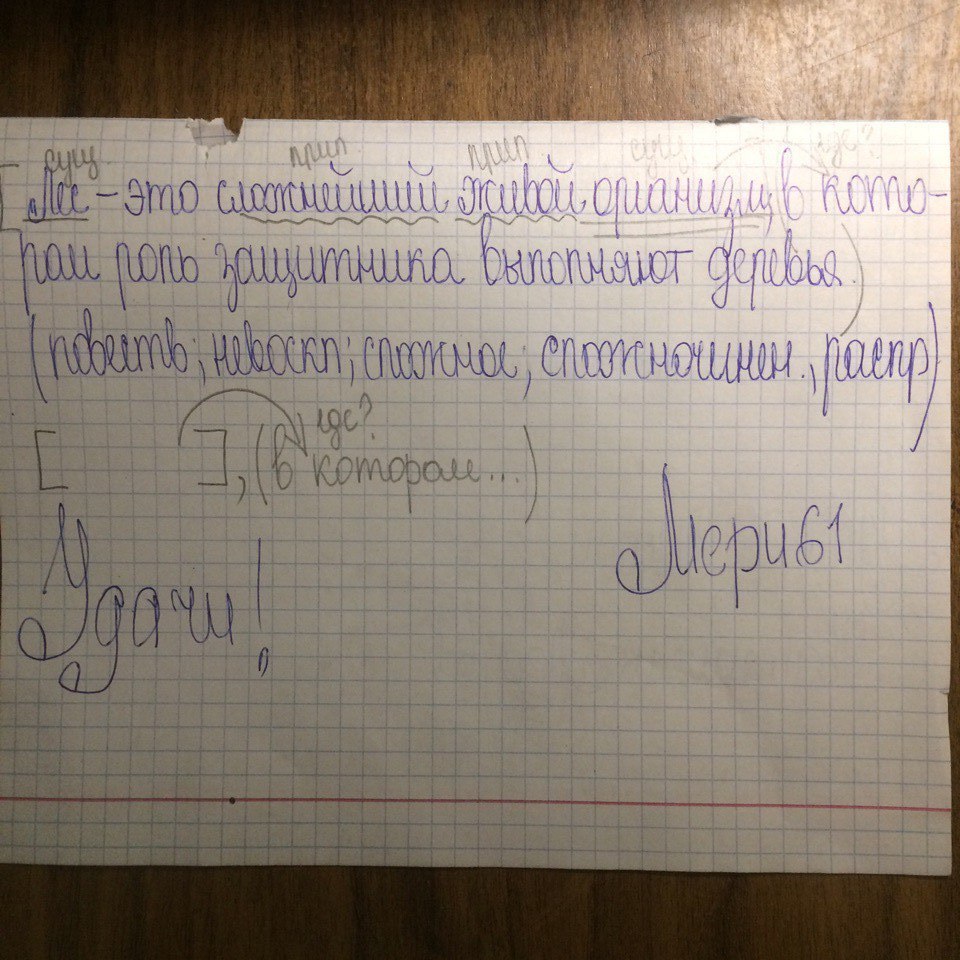 сущ. прил прил сущ где?
[Лес - это сложнейший живой организм, (в кото-
ром роль защитника выполняют деревья.)
(повеств; невоскл; сложное; сложночинен., распр)
где?
[ ], (в котором...)
Мери61
Удачи!